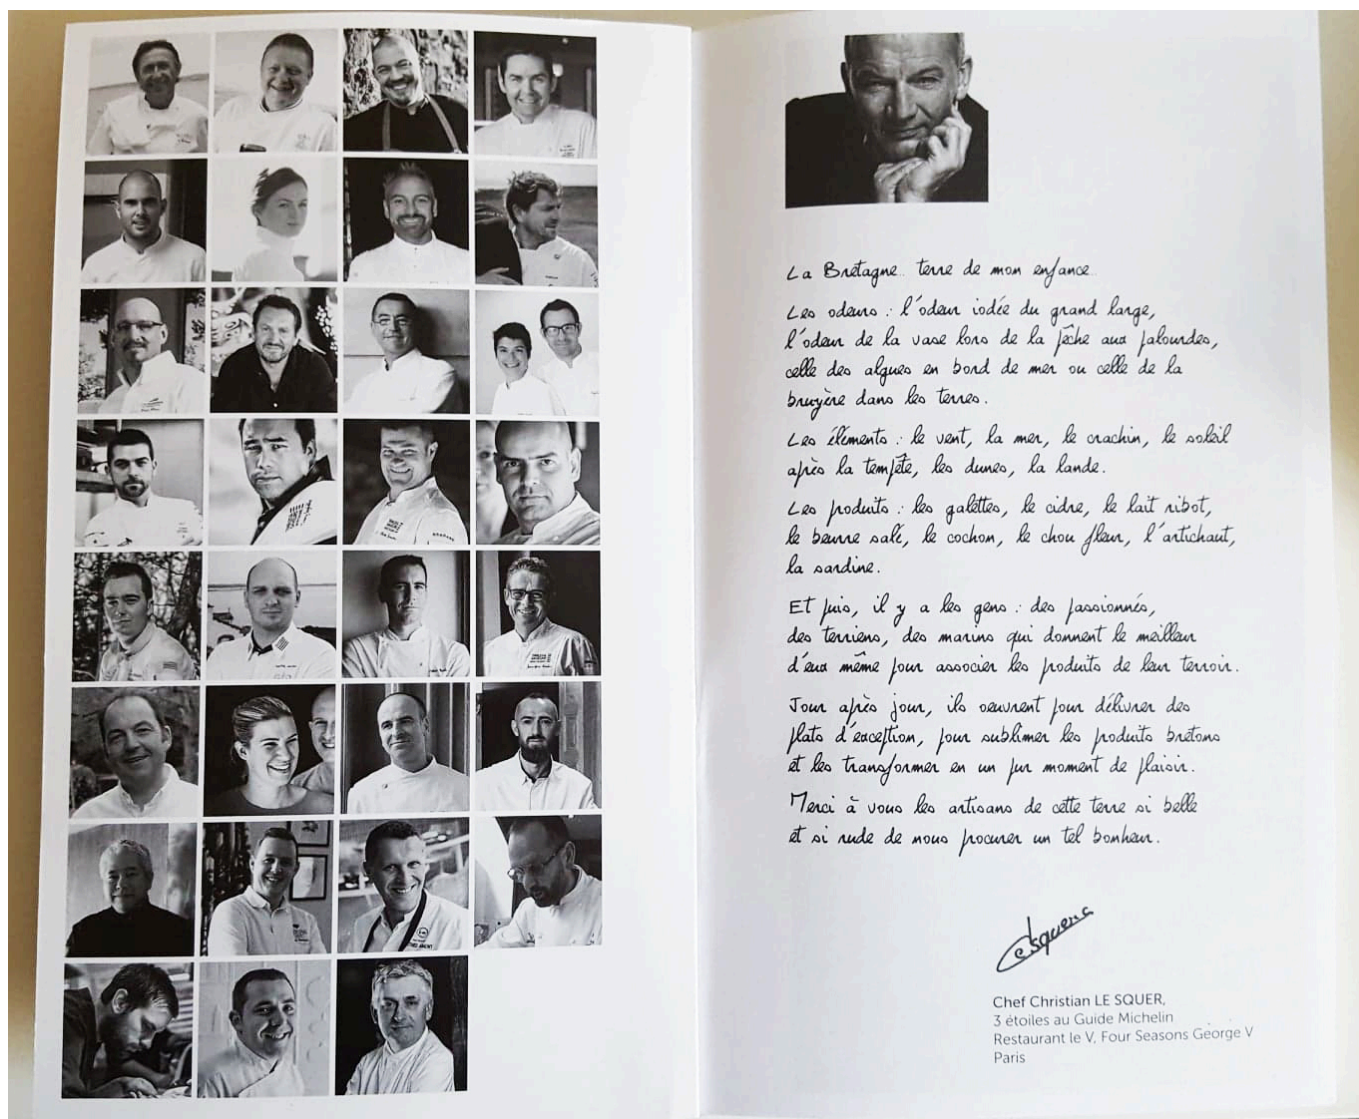 La Bretagne.. terre de mon enfance..
Les odeurs : l'odeur iodée du grand large,
l'odeur de la vase lors de la pêche aux palourdes,
celle des algues en bord de mer ou celle de la
bruyère dans les terres.
Les éléments : le vent, la mer, le crachin, le soleil
après la tempête, les dunes, la lande.
Les produits : les galettes, le cidre, le lait ribot,
le beurre salé, le cochon, le chou fleur, l'artichaut,
la sardine.
Et puis, il y a les gens : des passionnés,
des terriens, des marins qui donnent le meilleur
d'eux même pour associer les produits de leur terroir.
Jour après jour, ils oeuvrent pour délivrer des
plats d'exception, pour sublimer les produits bretons
et les transformer en un pur moment de plaisir.
Merci à vous les artisans de cette terre si belle
et si rude de nous procurer un tel bonheur.
Chef Christian LE SQUER,
3 étoiles au Guide Michelin
Restaurant le V, Four Seasons George V
Paris